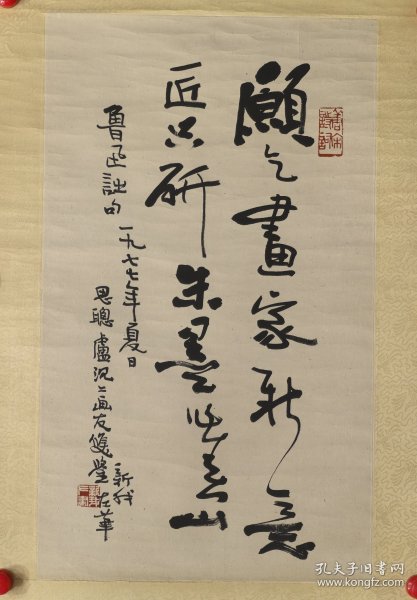 願乞畫家新意
匠只研朱墨作春山
魯迅詩句 一九七七年夏日
思聰盧沉二画友雙鑒
新我左筆
孔夫子旧书网
www.kongfz.com